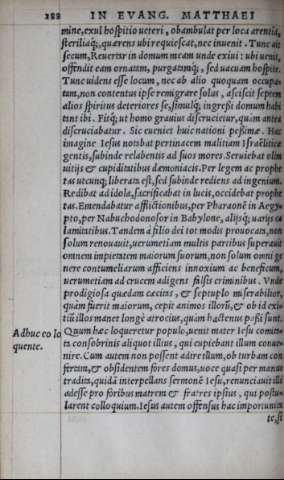 288 IN EVANG. MATTHAEI
mine, exul hospitio ueteri, obambulat per loca arentia,
steriliaq́;, quærens ubi requiescat, nec inuenit. Tunc ait
secum, Reuertar in domum meam unde exiui: ubi uenit,
offendit eam ornatam, purgatamq́;, sed uacuam hospite.
Tunc uidens esse locum, nec ab alio quoquam occupa-
tum, non contentus ipse remigrare solus, asciscit septem
alios spiritus deteriores se, simulq́; ingressi domum habi
tant ibi. Fitq́; ut homo grauius discrucietur, quàm antea
discruciabatur. Sic eueniet huic nationi pessimæ. Hac
imagine Iesus notabat pertinacem malitiam Israëliticæ
gentis, subinde relabentis ad suos mores. Seruiebat olim
uitijs & cupiditatibus dæmoniacis. Per legem ac prophe
tas utcunq; liberata est, sed subinde rediens ad ingenium.
Redibat ad idola, sacrificabat in lucis, occidebat prophe
tas. Emendabatur afflictionibus, per Pharaonem in Aegy-
pto, per Nabuchodonosor in Babylone, alijsq́; uarijs ca
lamitatibus. Tandem à filio dei tot modis prouocata, non
solum renouauit, uerumetiam multis partibus superauit
omnem impietatem maiorum suorum, non solum omni ge
nere contumeliarum afficiens innoxium ac beneficum,
uerumetiam ad crucem adigens falsis criminibus. Vnde
prodigiosa quædam cæcitas, & septuplo miserabilior,
quàm fuerit maiorum, cepit animos illorū, & ob id exi-
tiū illos manet longè atrocius, quàm hactenus passi sunt.
Adhuc eo lo
quente.
Quum hæc loqueretur populo, uenit mater Iesu comita-
ta consobrinis aliquot illius, qui cupiebant illum conue-
nire. Cum autem non possent adire illum, ob turbam con
fertam, & obsidentem fores domus, uoce quasi per manus
tradita, quidā interpellans sermonē Iesu, renunciauit illi
adesse pro foribus matrem & fratres ipsius, qui postu-
larent colloquium. Iesus autem offensus hac importunita
te, si